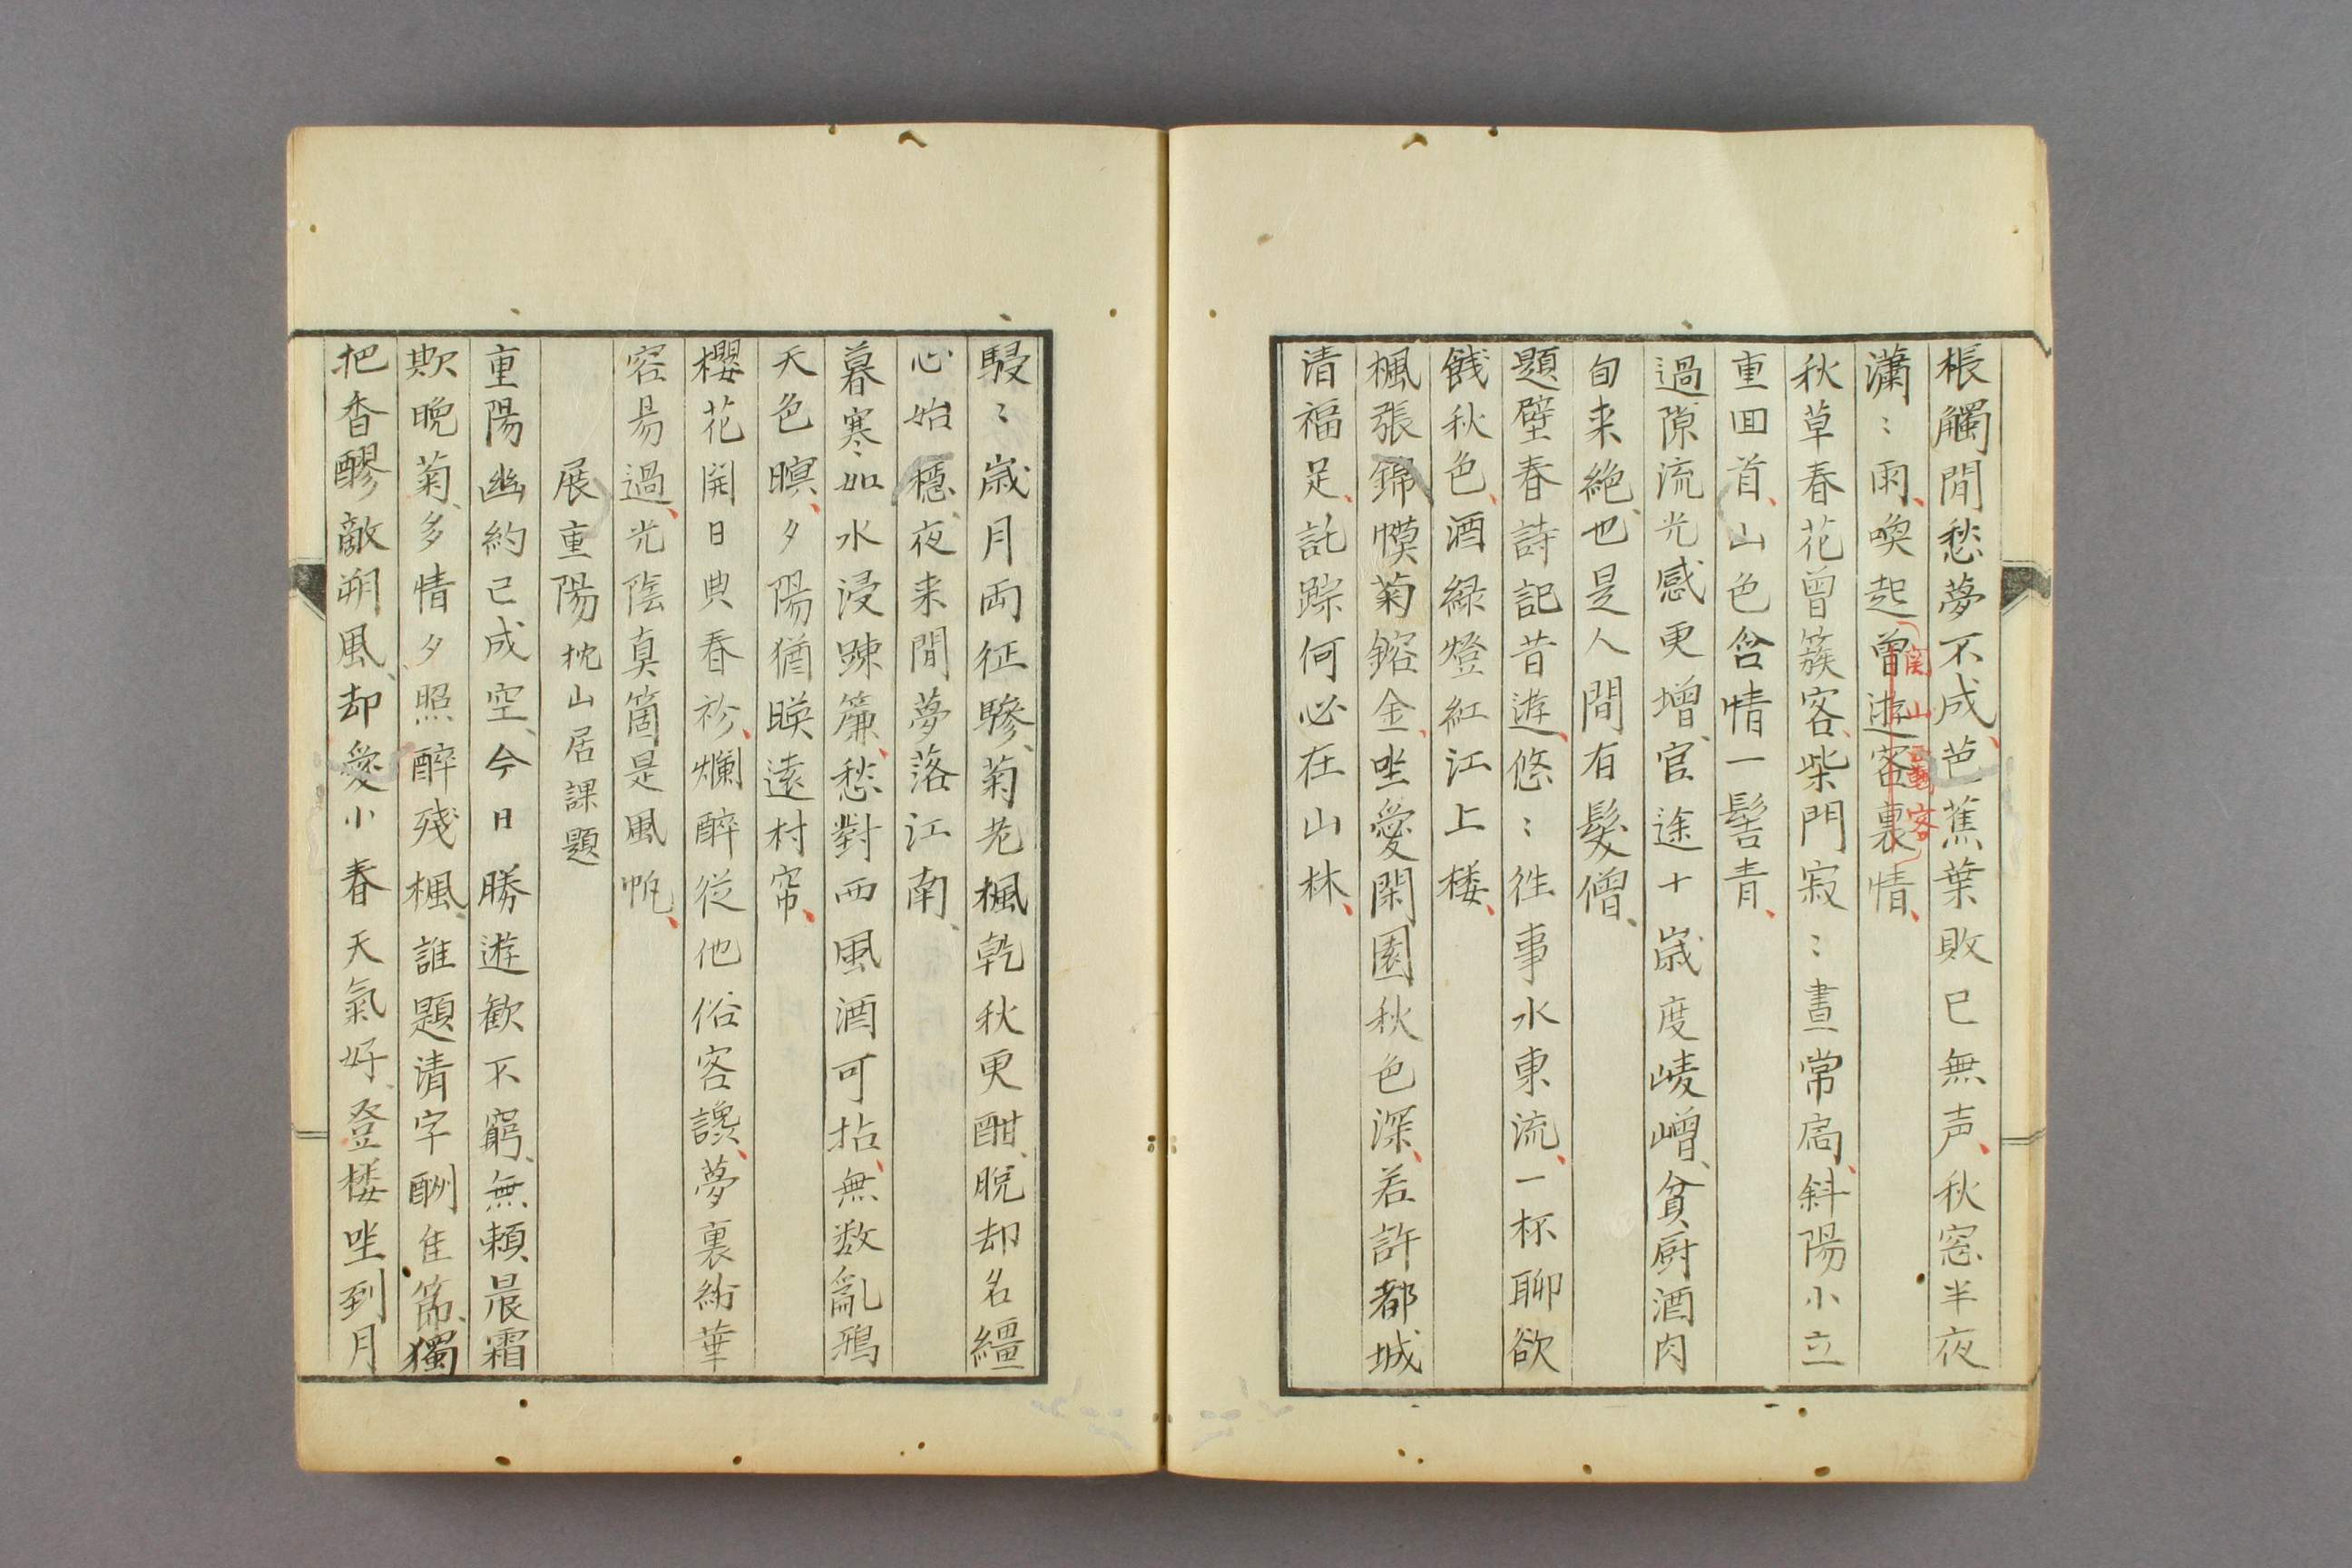 棖觸閒愁夢不成、芭蕉葉敗已無声、秋窓半夜
瀟〻雨、喚起曾遊客裏情、
関山羇客
秋草春花曾簇客、柴門寂〻晝常扃、斜陽小立
重回首、山色含情一髻青、
過隙流光感更增、官途十歲度崚嶒、貧厨酒肉
旬来絶、也是人間有髮僧、
題壁春詩記昔遊、悠〻徃事水東流、一杯聊欲
餞秋色、酒緑燈紅江上楼、
楓張錦幙菊鎔金、坐愛閑園秋色深、若許都城
清福足、託踪何必在山林、
駸〻歳月両征驂、菊老楓乾秋更酣、脱却名繮
心始穏、夜来閒夢落江南、
暮寒如水浸踈簾、愁對西風酒可拈、無数亂鴉
天色暝、夕陽猶映遠村帘、
櫻花開日典春衫、爛醉従他俗客讒、夢裏紛華
容易過、光陰真箇是風帆、
展重陽 枕山居課題
重陽幽約已成空、今日勝遊歓不窮、無頼晨霜
欺晩菊、多情夕照醉殘楓、誰題清字酬佳節、獨
把香醪敵朔風、却愛小春天氣好、登楼坐到月